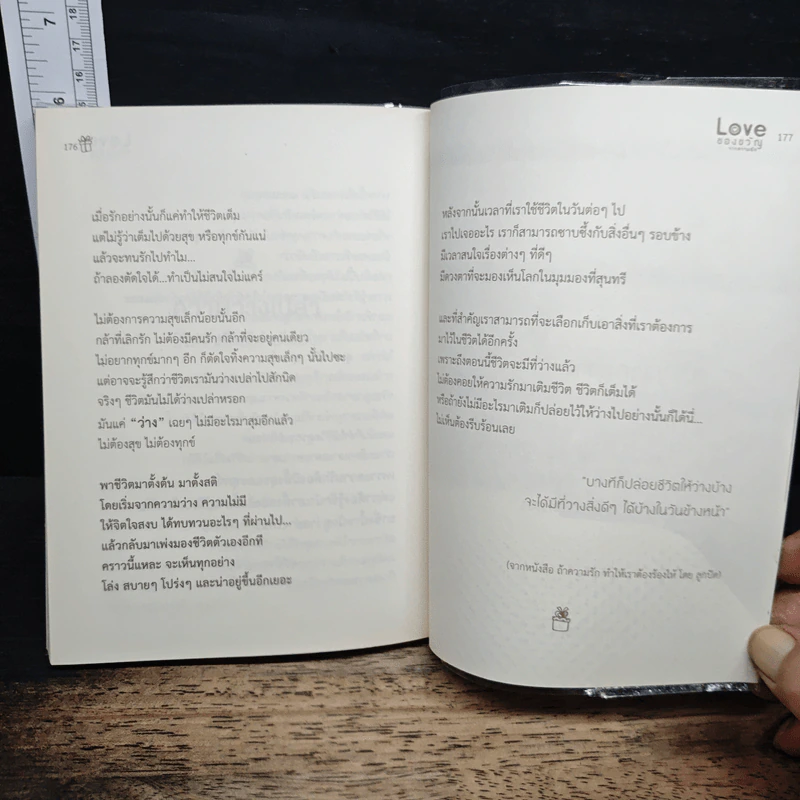 7
18
17
16
6
15
176
เมื่อรักอย่างนั้นก็แค่ทำให้ชีวิตเต็ม
แต่ไม่รู้ว่าเต็มไปด้วยสุข หรือทุกข์กันแน่
แล้วจะทนรักไปทำไม...
ถ้าลองตัดใจได้...ทำเป็นไม่สนใจไม่แคร์
ไม่ต้องการความสุขเล็กน้อยนั้นอีก
กล้าที่เลิกรัก ไม่ต้องมีคนรัก กล้าที่จะอยู่คนเดียว
ไม่อยากทุกข์มากๆ อีก ก็ตัดใจทิ้งความสุขเล็กๆ นั้นไปซะ
แต่อาจจะรู้สึกว่าชีวิตเรามันว่างเปล่าไปสักนิด
จริงๆ ชีวิตมันไม่ได้ว่างเปล่าหรอก
มันแค่ “ว่าง” เฉยๆ ไม่มีอะไรมาสุมอีกแล้ว
ไม่ต้องสุข ไม่ต้องทุกข์
พาชีวิตมาตั้งต้น มาตั้งสติ
โดยเริ่มจากความว่าง ความไม่มี
ให้จิตใจสงบ ได้ทบทวนอะไรๆ ที่ผ่านไป...
แล้วกลับมาเพ่งมองชีวิตตัวเองอีกที
คราวนี้แหละ จะเห็นทุกอย่าง
โล่ง สบายๆ โปร่งๆ และน่าอยู่ขึ้นอีกเยอะ
Love
ของขวัญ
177
หลังจากนั้นเวลาที่เราใช้ชีวิตในวันต่อๆ ไป
เราไปเจออะไร เราก็สามารถซาบซึ้งกับสิ่งอื่นๆ รอบข้าง
มีเวลาสนใจเรื่องต่างๆ ที่ดีๆ
มีดวงตาที่จะมองเห็นโลกในมุมมองที่สุนทรี
และที่สำคัญเราสามารถที่จะเลือกเก็บเอาสิ่งที่เราต้องการ
มาไว้ในชีวิตได้อีกครั้ง
เพราะถึงตอนนี้ชีวิตจะมีที่ว่างแล้ว
ไม่ต้องคอยให้ความรักมาเติมชีวิต ชีวิตก็เต็มได้
หรือถ้ายังไม่มีอะไรมาเติมก็ปล่อยไว้ให้ว่างไปอย่างนั้นก็ได้นี่...
ไม่เห็นต้องรีบร้อนเลย
“บางทีก็ปล่อยชีวิตให้ว่างบ้าง
จะได้มีที่วางสิ่งดีๆ ได้บ้างในวันข้างหน้า”
(จากหนังสือ ถ้าความรัก ทำให้เราต้องร้องไห้ โดย ลูกเป็ด)